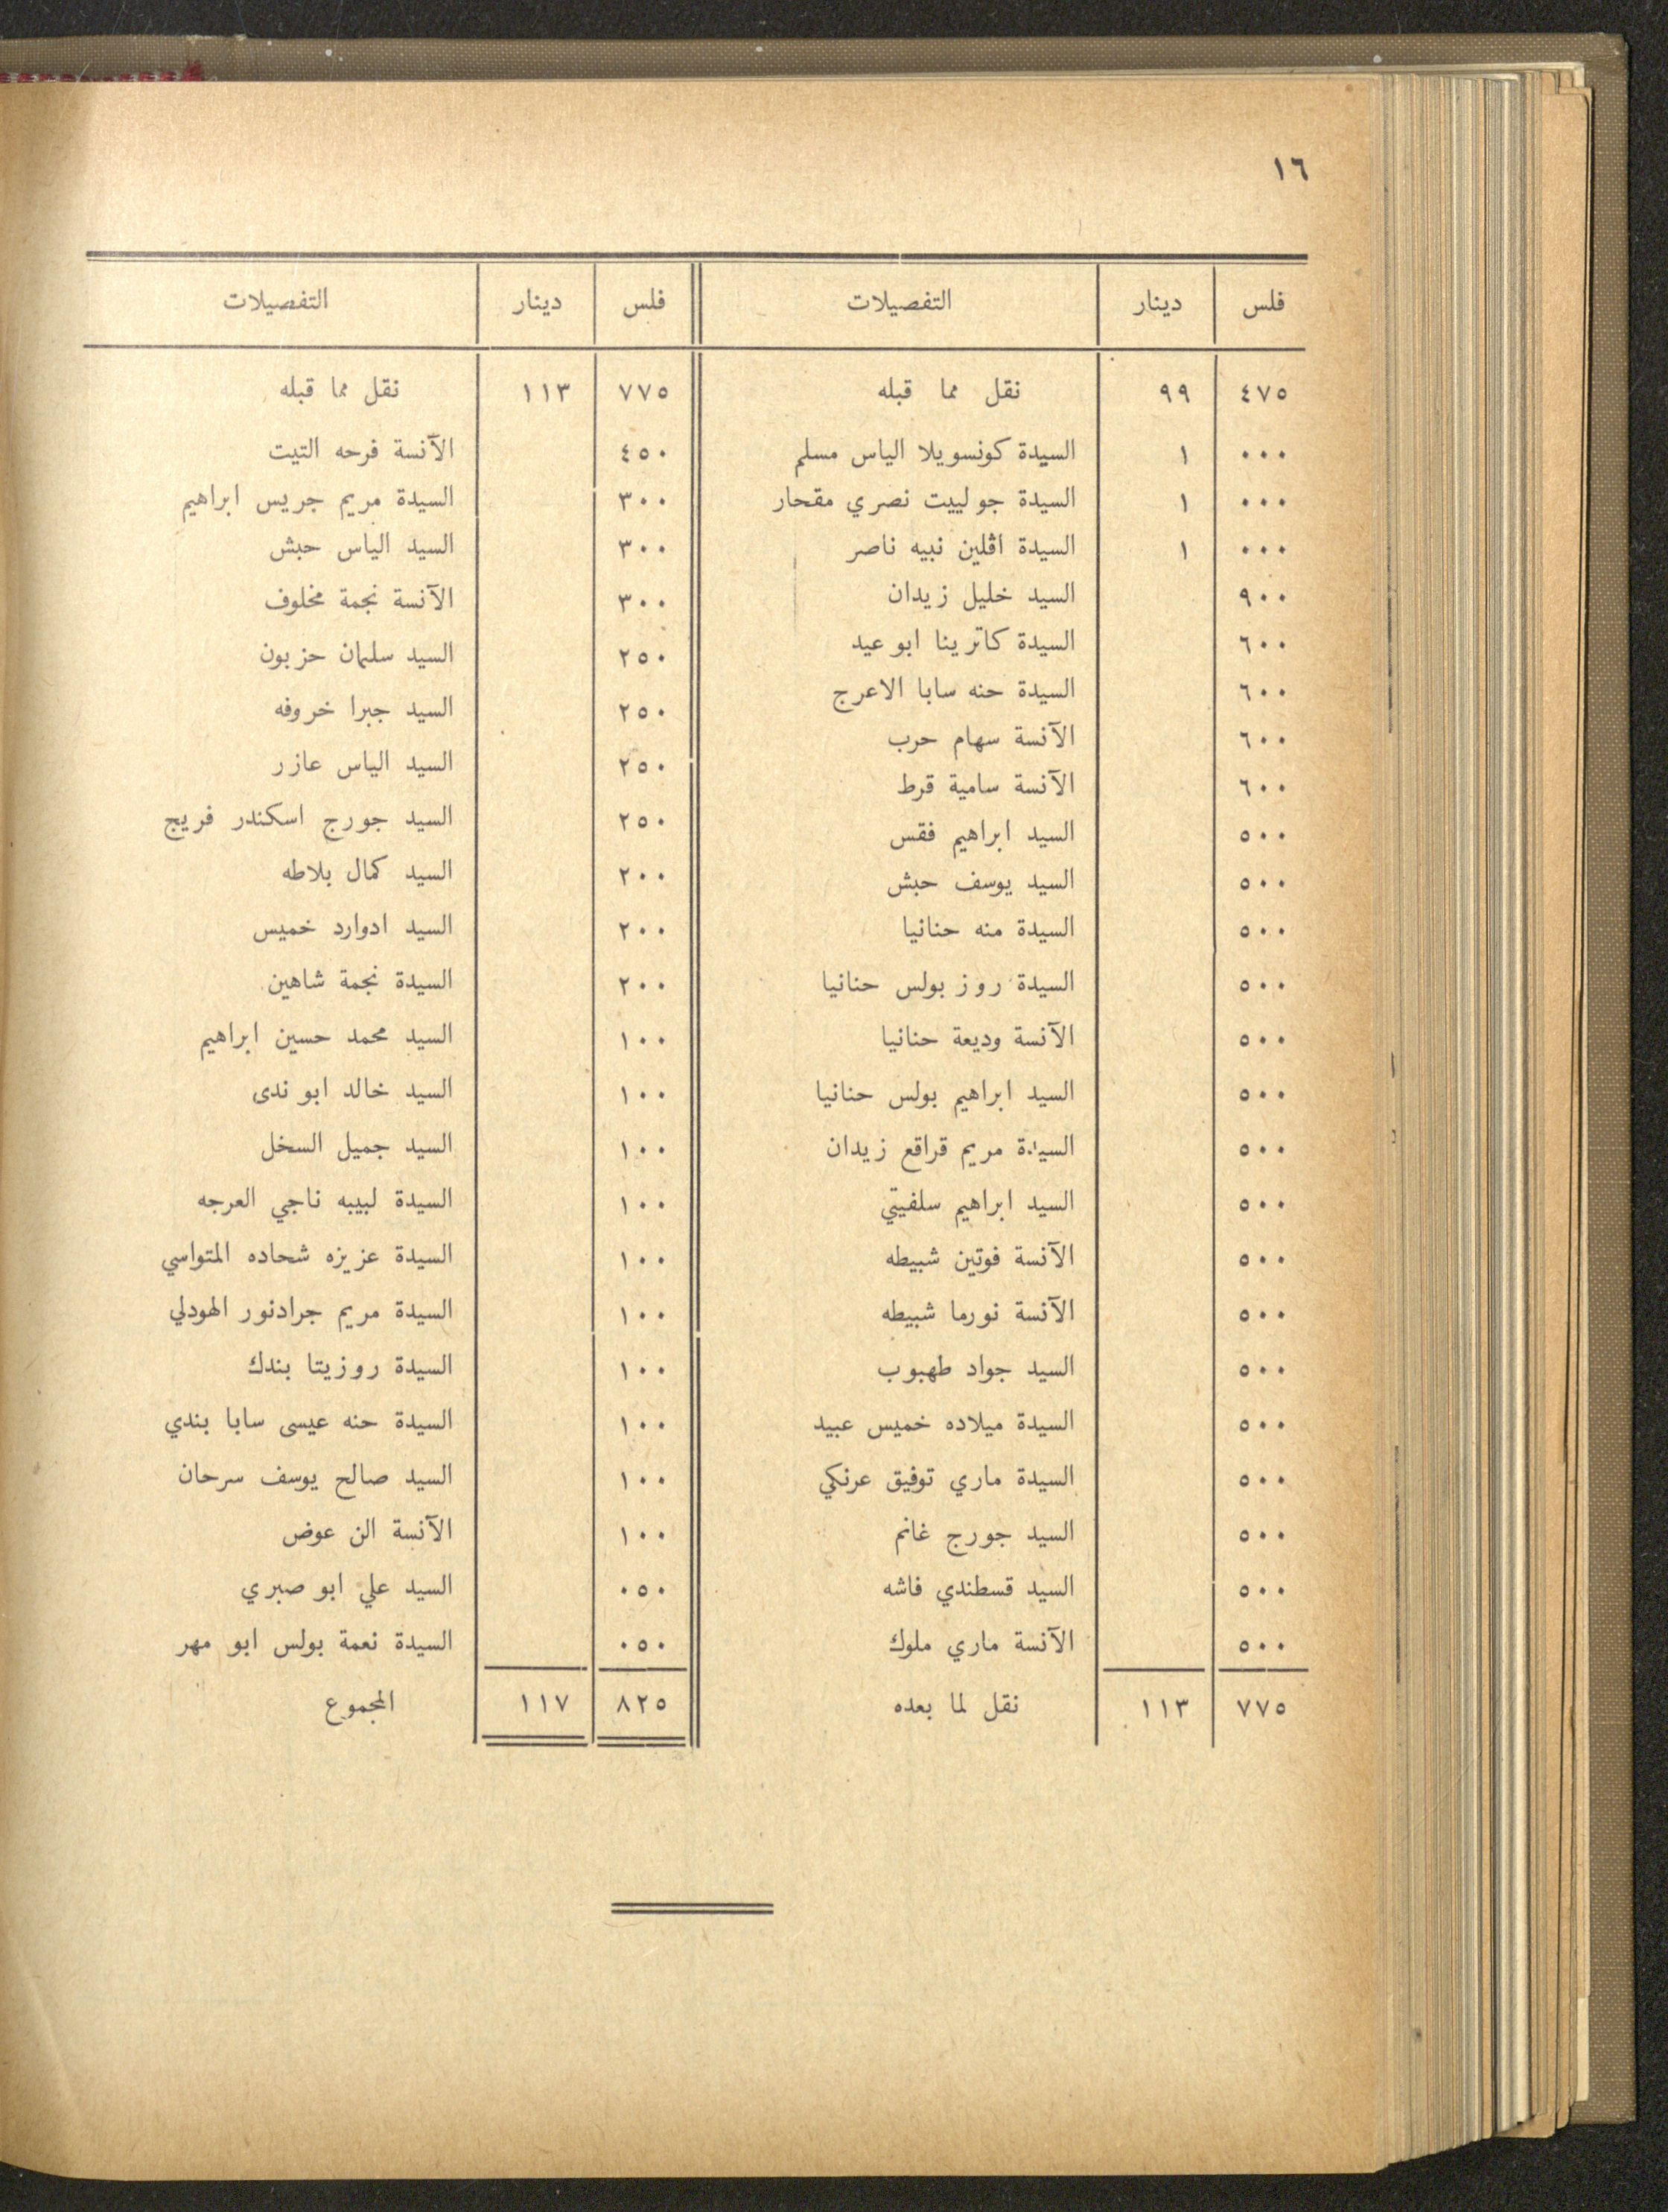 ١٦
فلس دينار التفصيلات
٤٧٥ ٩٩ نقل مما قبله
٠٠٠ ١ السيدة كونسويلا الياس مسلم
٠٠٠ ١ السيدة جولييت نصري مقحار
٠٠٠ ١ السيدة اڤلين نبيه ناصر
٩٠٠ السيد خليل زيدان
٦٠٠ السيدة كاترينا ابو عيد
٦٠٠ السيدة حنه سابا الاعرج
٦٠٠ الآنسة سهام حرب
٦٠٠ الآنسة سامية قرط
٥٠٠ السيد ابراهيم فقس
٥٠٠ السيد يوسف حبش
٥٠٠ السيدة منه حنانيا
٥٠٠ السيدة روز بولس حنانيا
٥٠٠ الآنسة وديعة حنانيا
٥٠٠ السيد ابراهيم بولس حنانيا
٥٠٠ السيدة مريم قراقع زيدان
٥٠٠ السيد ابراهيم سلفيتي
٥٠٠ الآنسة فوتين شبيطه
٥٠٠ الآنسة نورما شبيطه
٥٠٠ السيد جواد طهبوب
٥٠٠ السيدة ميلاده خميس عبيد
٥٠٠ السيدة ماري توفيق عرنكي
٥٠٠ السيد جورج غانم
٥٠٠ السيد قسطندي فاشه
٥٠٠ الآنسة ماري ملوك
٧٧٥ ١١٣ نقل لما بعده
فلس دينار التفصيلات
٧٧٥ ١١٣ نقل مما قبله
٤٥٠ الآنسة فرحه التيت
٣٠٠ السيدة مريم جريس ابراهيم
٣٠٠ السيد الياس حبش
٣٠٠ الآنسة نجمة مخلوف
٢٥٠ السيد سليمان حزبون
٢٥٠ السيد جبرا خروفه
٢٥٠ السيد الياس عازر
٢٥٠ السيد جورج اسكندر فريج
٢٠٠ السيد كمال بلاطه
٢٠٠ السيد ادوارد خميس
٢٠٠ السيدة نجمة شاهين
١٠٠ السيد محمد حسين ابراهيم
١٠٠ السيد خالد ابو ندى
١٠٠ السيد جميل السخل
١٠٠ السيدة لبيبه ناجي العرجه
١٠٠ السيدة عزيزه شحاده المتواسي
١٠٠ السيدة مريم جرادنور الهودلي
١٠٠ السيدة روزيتا بندك
١٠٠ السيدة حنه عيسى سابا بندي
١٠٠ السيد صالح يوسف سرحان
١٠٠ الآنسة الن عوض
٠٥٠ السيد علي ابو صبري
٠٥٠ السيدة نعمة بولس ابو مهر
٨٢٥ ١١٧ المجموع